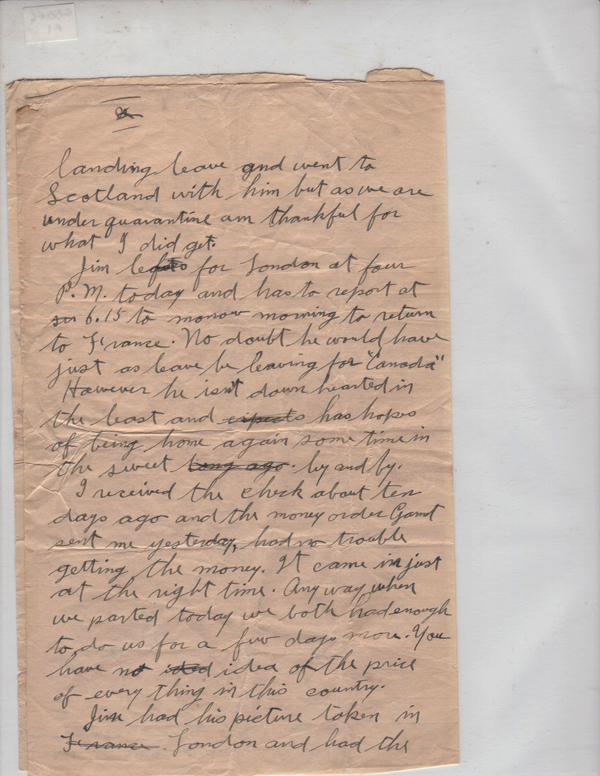 2
landing leave and went to
Scotland with him but as we are
under quarantine am thankful for
what I did get.
Jim left for London at four
P.M. today and has to report at
6.15 to morrow morning to return
to France. No doubt he would have
just as leave be leaving for "Canada"
However he isn't down hearted in
the least and expects has hopes
of being home again some time in
the sweet long ago by and by.
I received the check about ten
days ago and the money order Gamt
sent me yesterday, had no trouble
getting the money. It came in just
at the right time. Any way when
we parted today we both had enough
to do us for a few days more. You
have no idea of the price
of every thing in this country.
Jim had his picture taken in
France London and had the